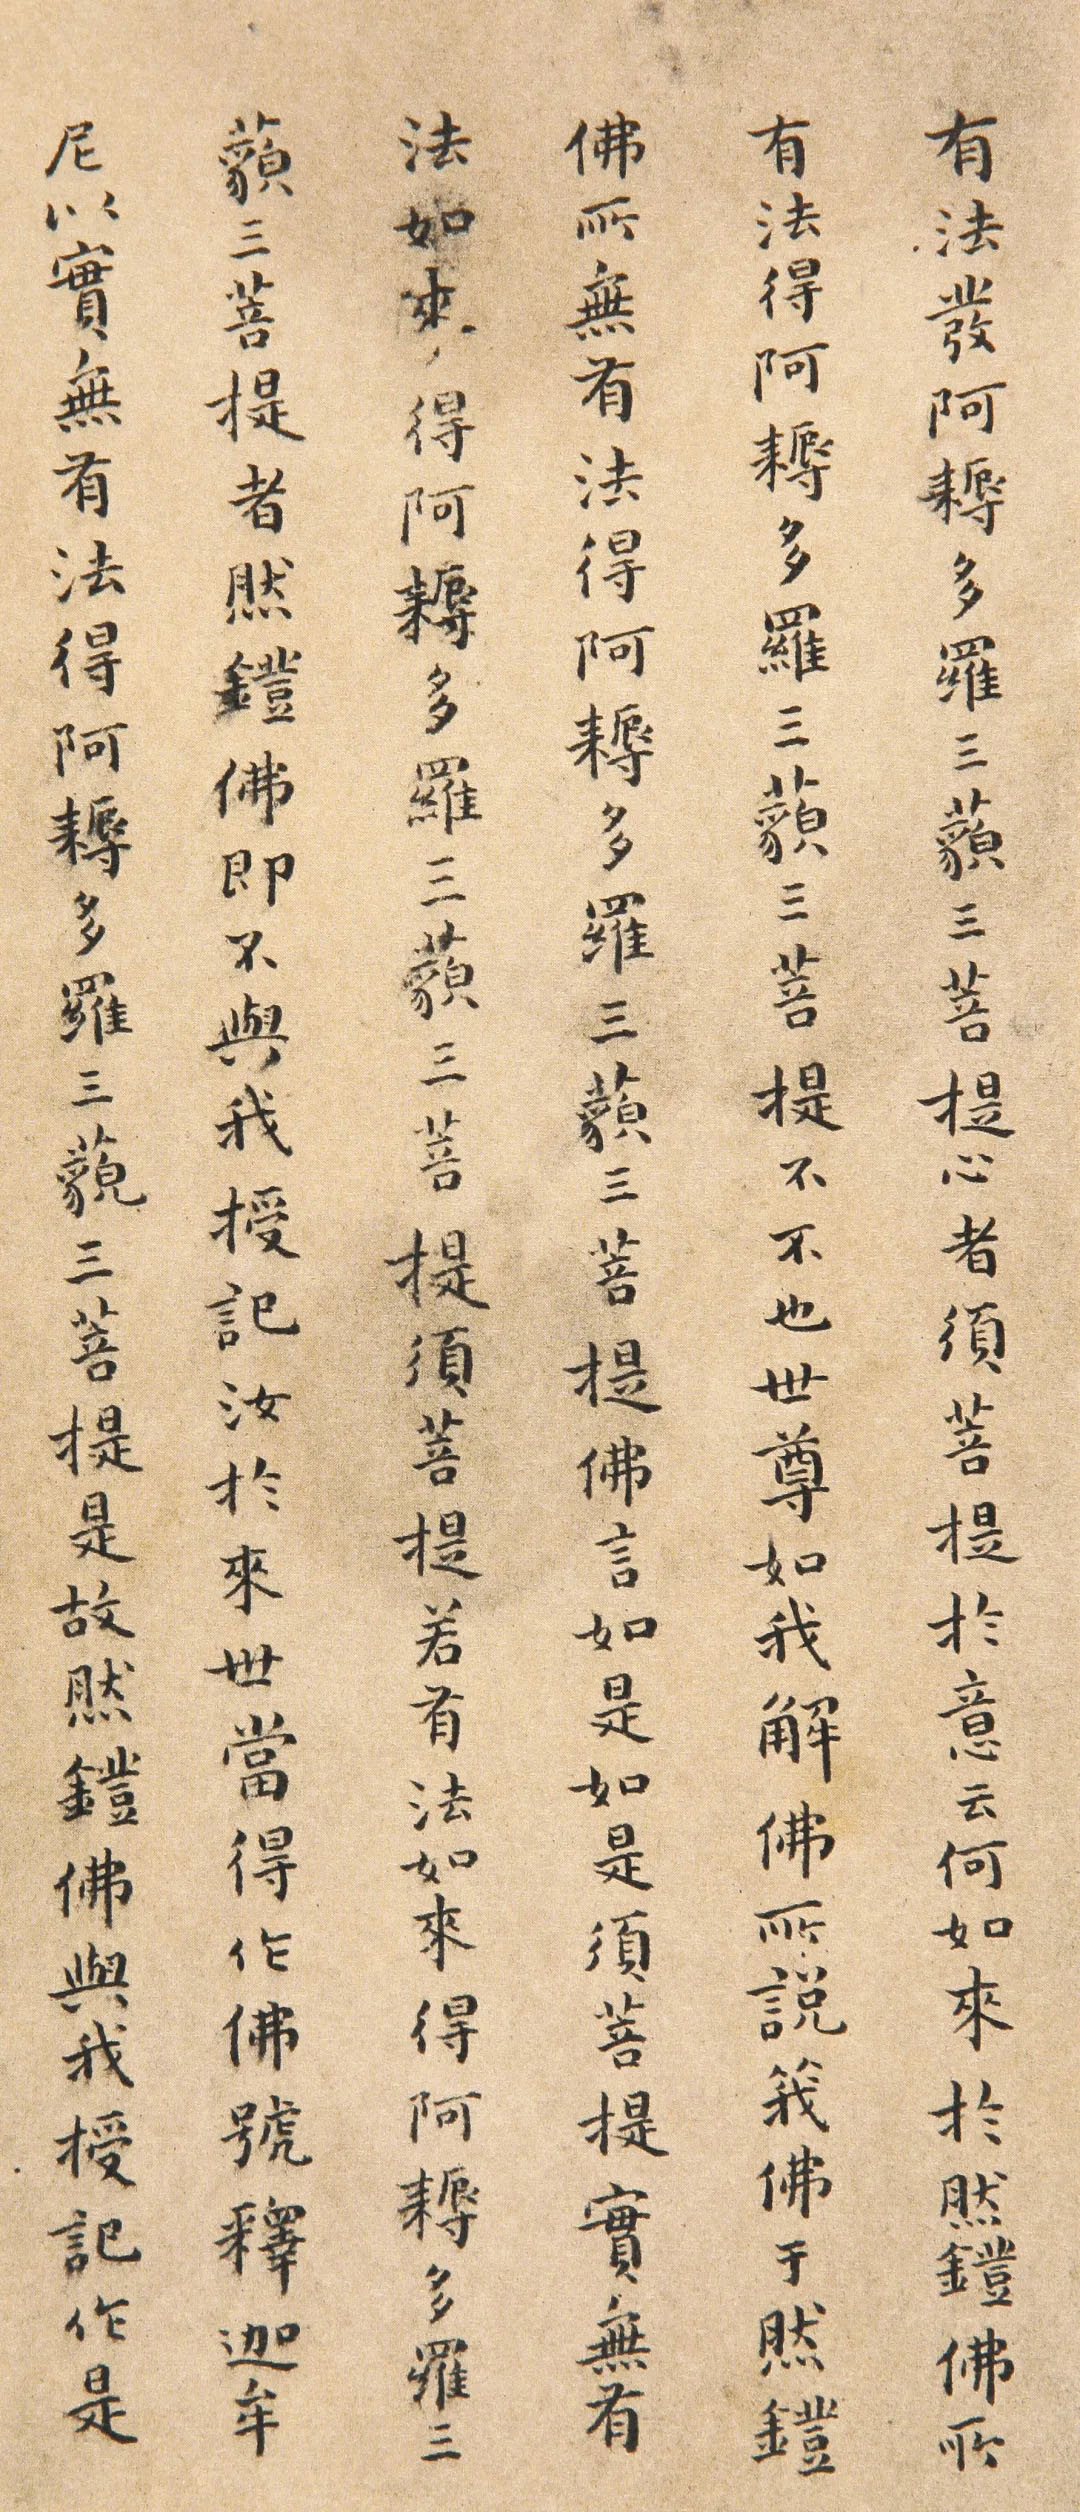 有法發阿耨多羅三藐三菩提心者須菩提於意云何如來於然鐙佛所
有法得阿耨多羅三藐三菩提不不也世尊如我解佛所說義佛于然鐙
佛所無有法得阿耨多羅三藐三菩提佛言如是如是須菩提實無有
法如來得阿耨多羅三藐三菩提須菩提若有法如來得阿耨多羅三
藐三菩提者然鐙佛即不與我授記汝於來世當得作佛號釋迦牟
尼以實無有法得阿耨多羅三藐三菩提是故然鐙佛與我授記作是